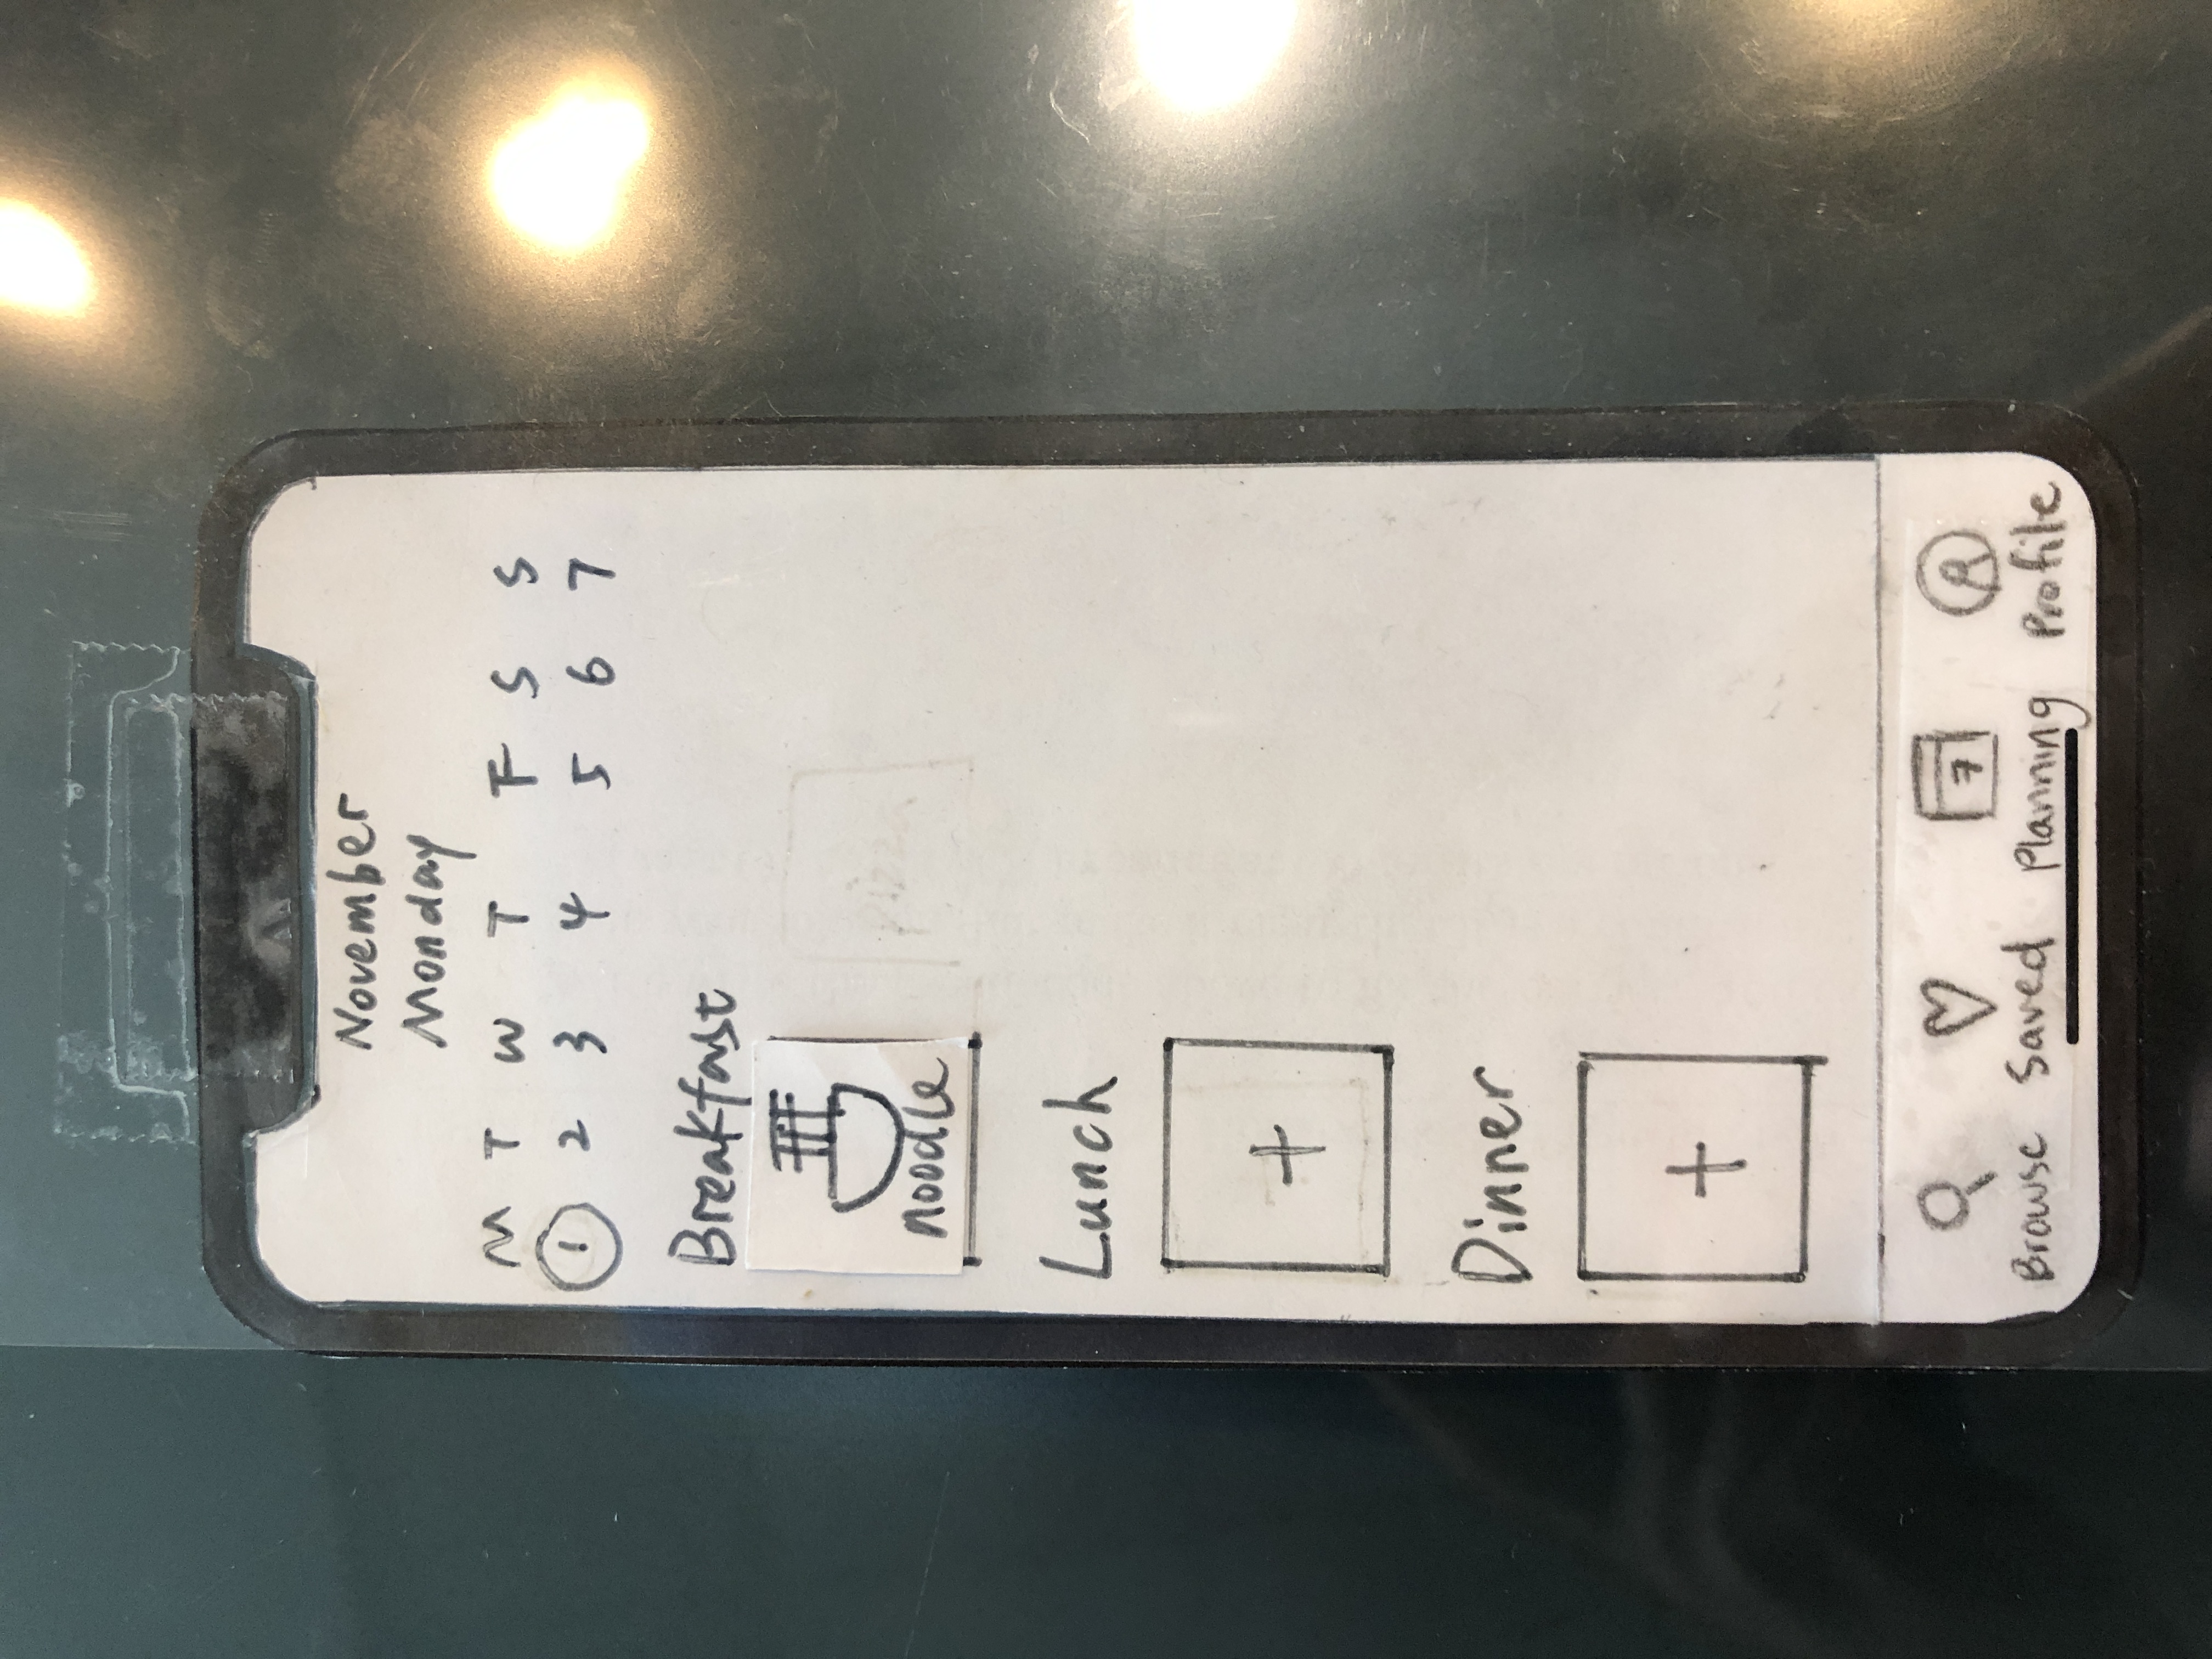 November
Monday
M T W T F S S
1 2 3 4 5 6 7
Breakfast
noodle
Lunch
+
Dinner
+
7
Browse Saved Planning Profile